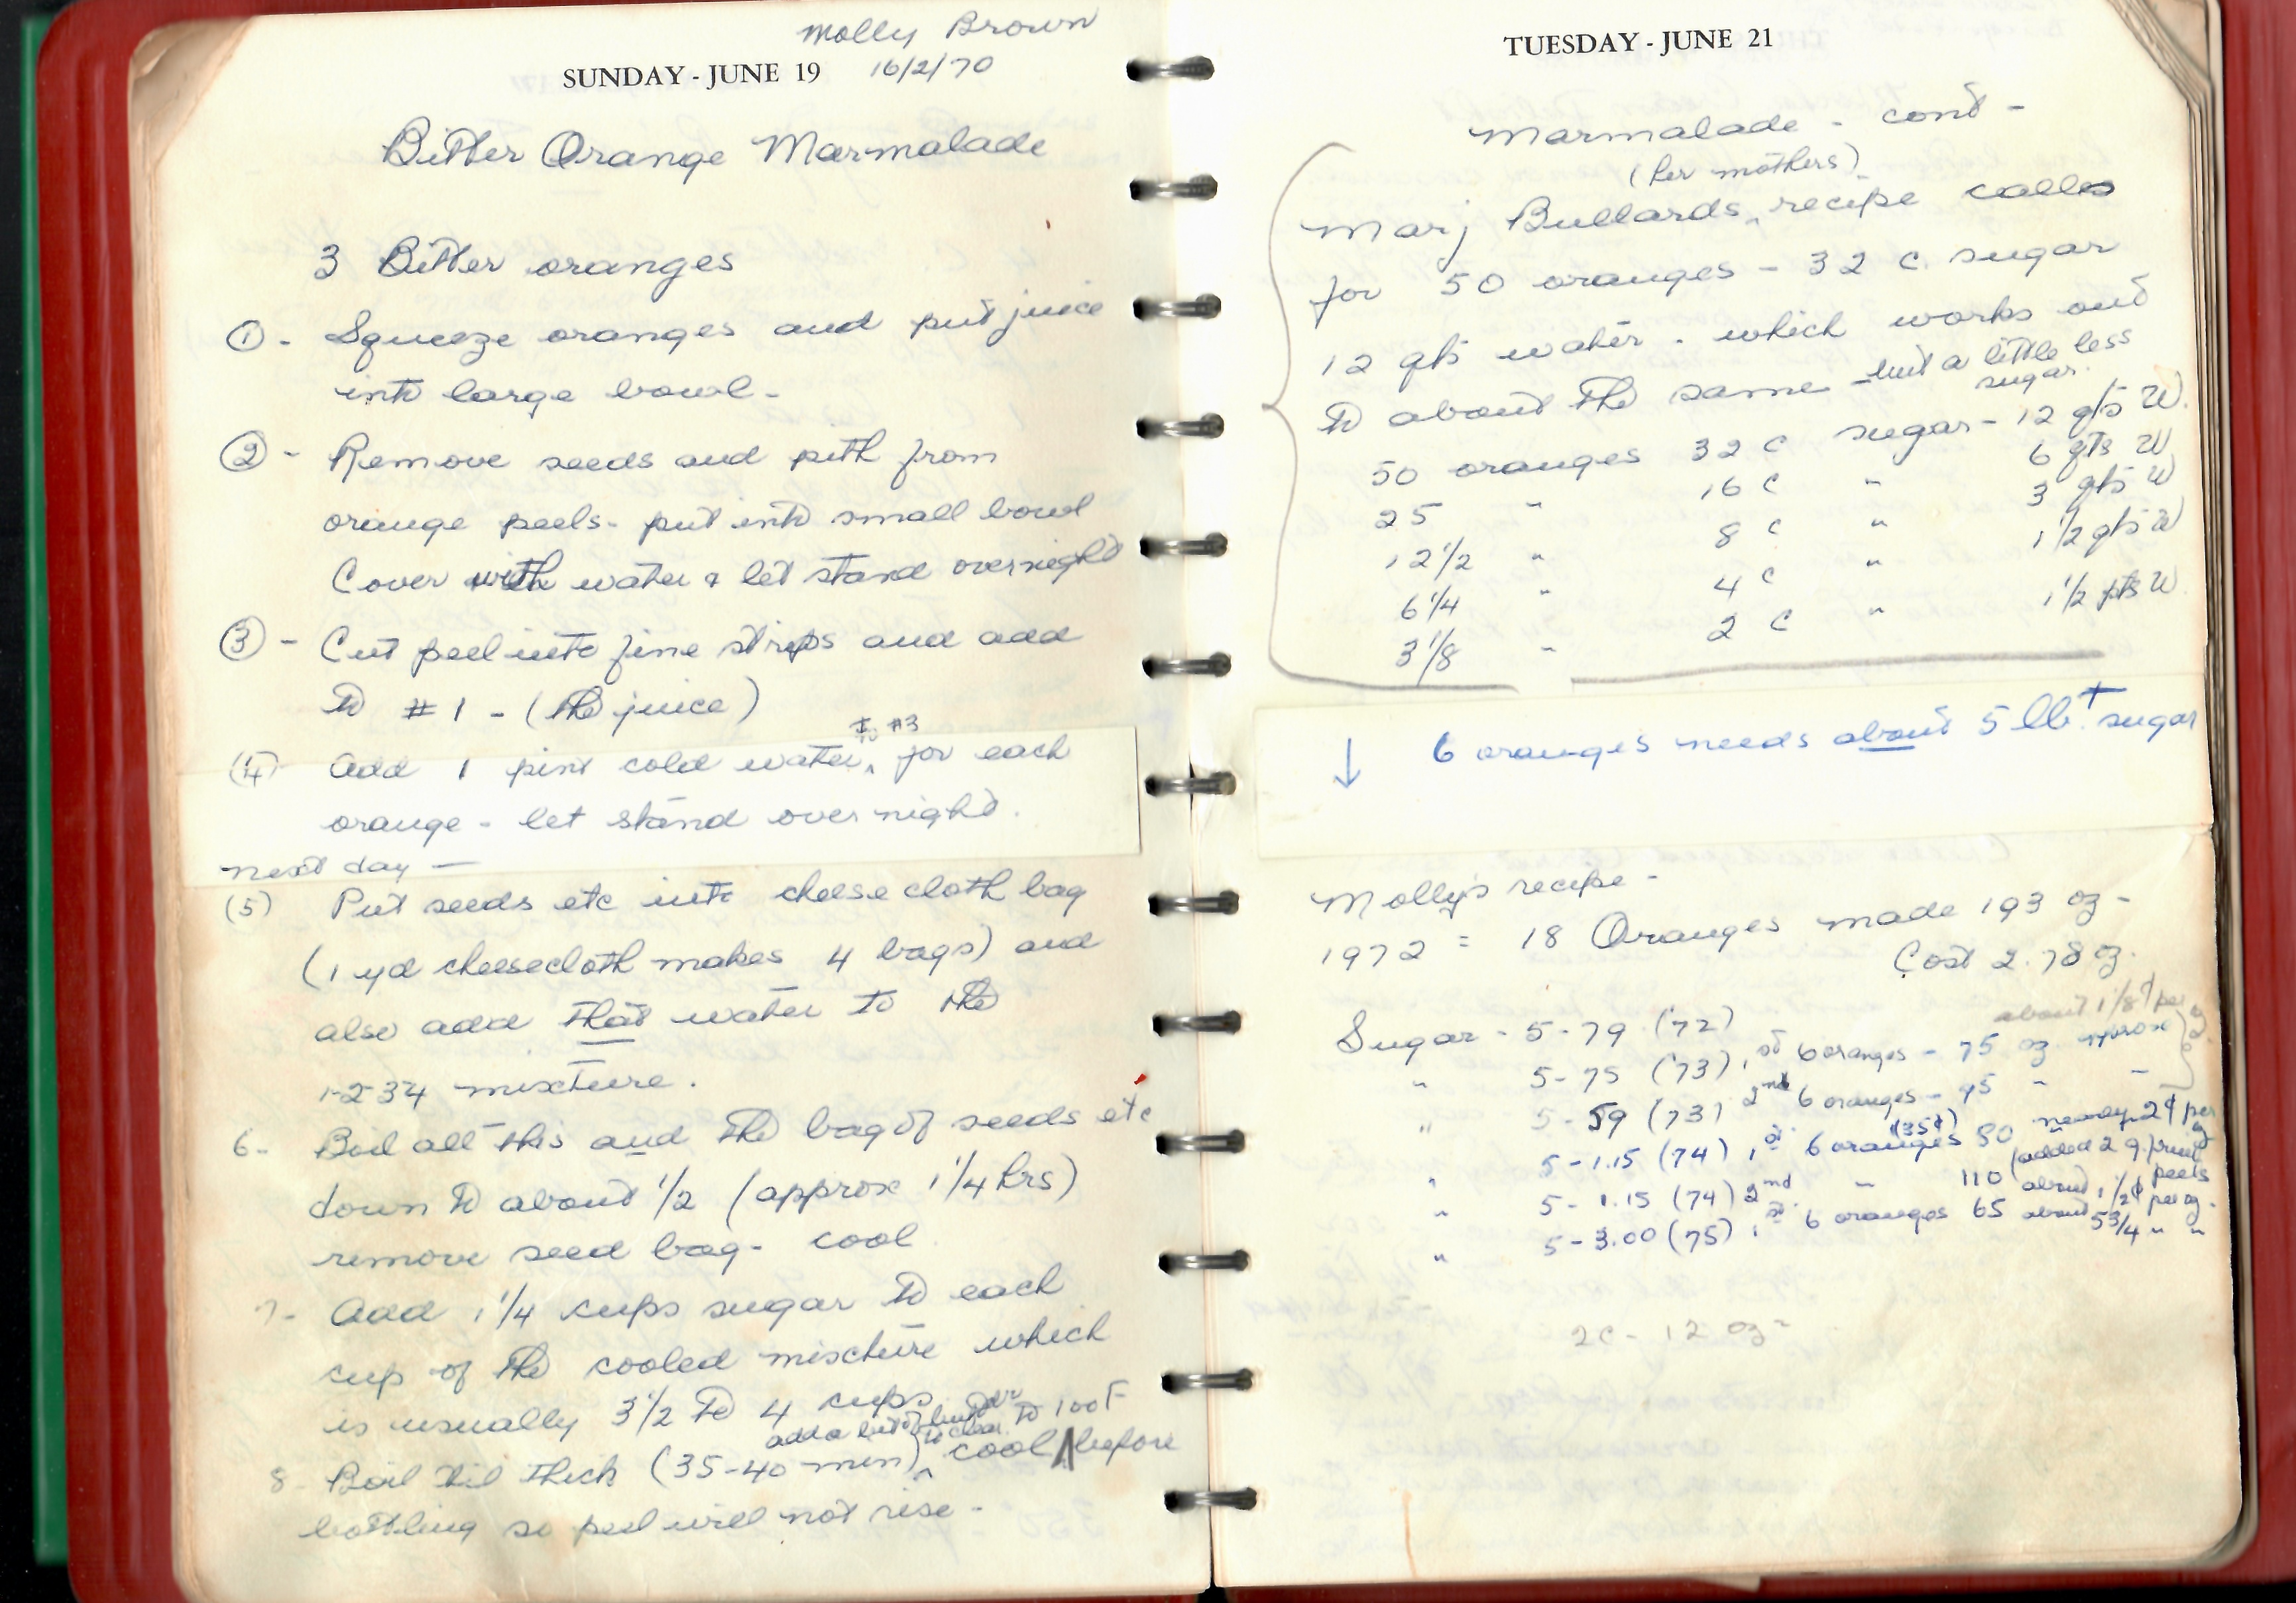 Molly Brown
SUNDAY - JUNE 19 16/2/70
Bitter Orange Marmalade
3 Bitter oranges
① - Squeeze oranges and put juice
into large bowl -
② - Remove seeds and pith from
orange peels - put into small bowl
Cover with water & let stand overnight
③ - Cut peel into fine strips and add
to #1 - (the juice)
to #3
(4) Add 1 pint cold water ‸ for each
orange - let stand over night.
next day —
(5) Put seeds etc into cheese cloth bag
(1 yd cheesecloth makes 4 bags) and
also add that water to the
1-2-3-4 mixture.
6 - Boil all this and the bag of seeds etc
down to about 1/2 (approx 1 1/4 hrs)
remove seed bag - cool
7 - Add 1 1/4 cups sugar to each
cup of the cooled mixture which
is usually 3 1/2 to 4 cups
add a bit of butter to clear to 100 F
8 - Boil til thick (35-40 min) ‸ cool ‸ before
bottling so peel will not rise -
TUESDAY - JUNE 21
Marmalade - cont -
(her mothers)
Marj Bullards ‸ recipe calles
for 50 oranges - 32 c. sugar
12 qts water - which works out
to about the same - but a little less
sugar.
50 oranges 32 c sugar - 12 qts W.
25 " 16 c " 6 qts W
12 1/2 " 8 c " 3 qts W
6 1/4 " 4 c " 1 1/2 qts W
3 1/8 " 2 c " 1 1/2 pts W
↓ 6 oranges needs about 5 lb.+ sugar
Molly's recipe -
1972 = 18 Oranges made 193 oz -
Cost 2.78 oz.
about 1 1/8¢ per oz
Sugar - 5 - 79 (72)
" 5 - 75 (73) 1st 6 oranges - 75 oz approx
" 5 - 59 (73) 2nd 6 oranges - 95 " "
" 5 - 1.15 (74) 1st 6 oranges (35¢) 80 nearly 2¢ per oz
" 5 - 1.15 (74) 2nd " 110 (added 2 g. fruit peels about 1 1/2¢ per oz.
" 5 - 3.00 (75) 1st 6 oranges 65 about 5 3/4 " "
2c - 12 oz =